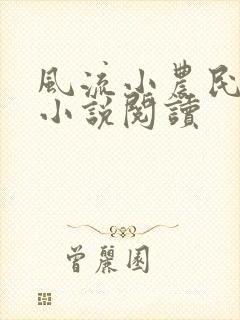 風流小農民
小說閱讀
曾麗園